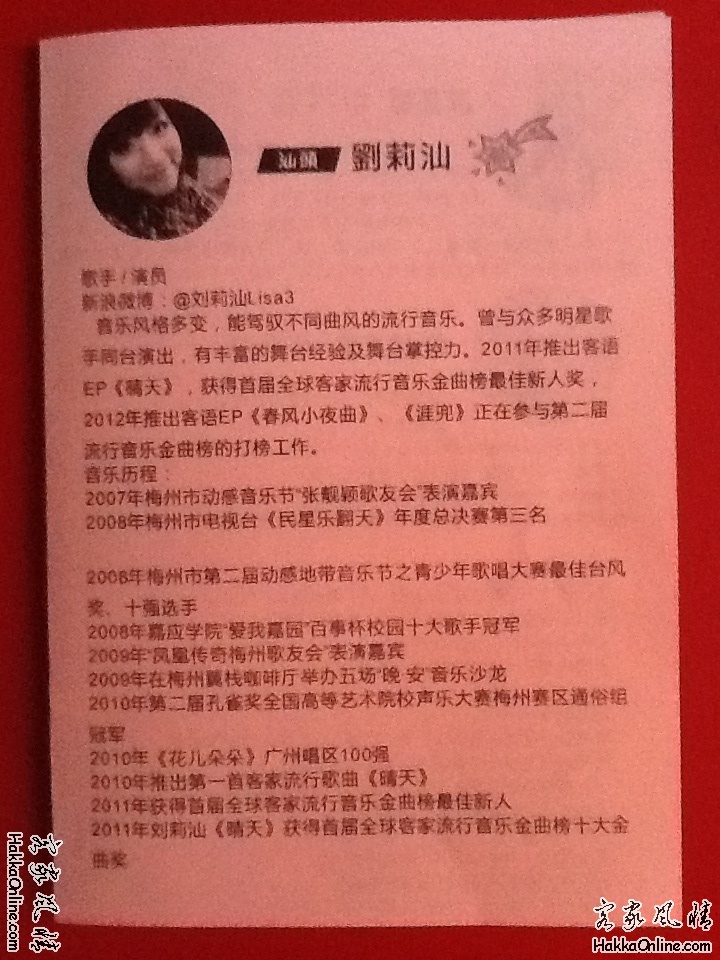 汕頭 劉莉汕
歌手 / 演员
新浪微博：@刘莉汕Lisa3
音乐风格多变，能驾驭不同曲风的流行音乐。曾与众多明星歌
手同台演出，有丰富的舞台经验及舞台掌控力。2011年推出客语
EP《晴天》，获得首届全球客家流行音乐金曲榜最佳新人奖，
2012年推出客语EP《春风小夜曲》、《涯兜》正在参与第二届
流行音乐金曲榜的打榜工作。
音乐历程：
2007年梅州市动感音乐节“张靓颖歌友会”表演嘉宾
2008年梅州市电视台《民星乐翻天》年度总决赛第三名
2008年梅州市第二届动感地带音乐节之青少年歌唱大赛最佳台风
奖、十强选手
2008年嘉应学院“爱我嘉园”百事杯校园十大歌手冠军
2009年“凤凰传奇梅州歌友会”表演嘉宾
2009年在梅州驿栈咖啡厅举办五场“晚 安”音乐沙龙
2010年第二届孔雀奖全国高等艺术院校声乐大赛梅州赛区通俗组
冠军
2010年《花儿朵朵》广州唱区100强
2010年推出第一首客家流行歌曲《晴天》
2011年获得首届全球客家流行音乐金曲榜最佳新人
2011年刘莉汕《晴天》获得首届全球客家流行音乐金曲榜十大金
曲奖
客家风情
HakkaOnline.com
客家風情
HakkaOnline.com